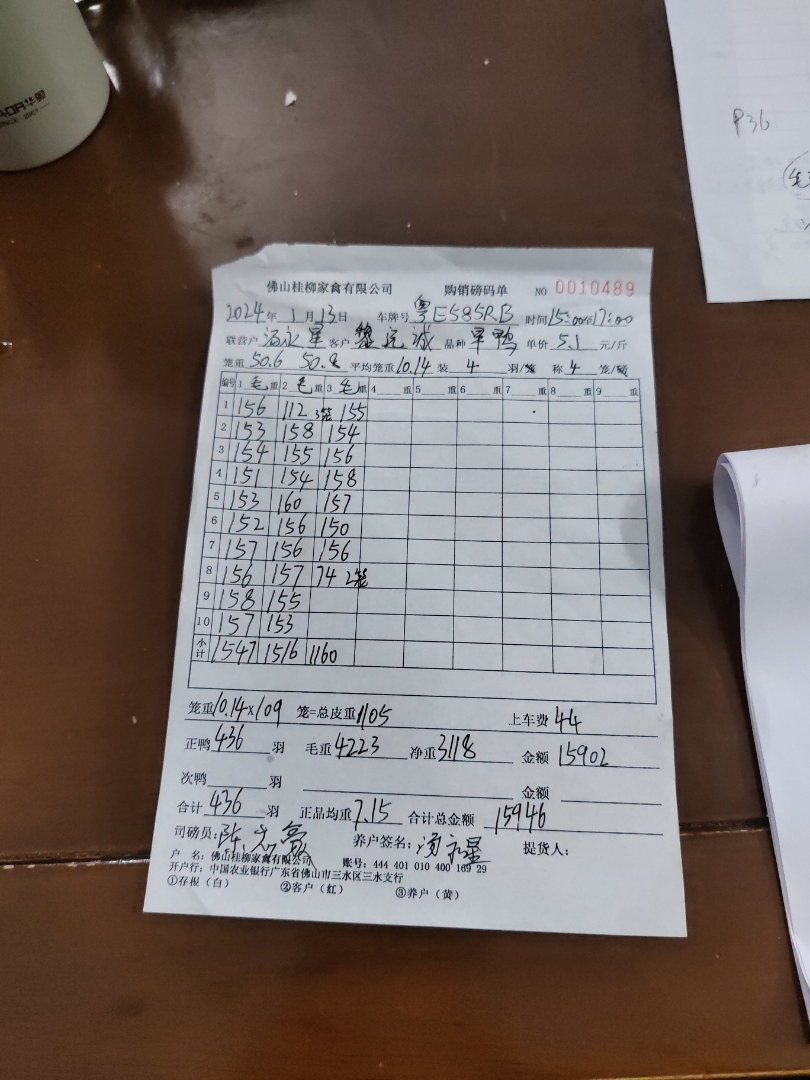 AQA华爵
SINCE 2001
P36
佛山桂柳家禽有限公司 购销磅码单 NO 0010489
2024年1月13日 车牌号 粤E585RB 时间15:00至17:00
联营户 星 客户 黎远诚 品种 旱鸭 单价 5.1 元/斤
笼重 50.6 50.8 平均笼重10.14 装 4 羽/笼 称 4 笼/磅
编号 1 毛 重 2 毛 重 3 毛 重 4 重 5 重 6 重 7 重 8 重 9 重
1 156 112 3笼 155
2 153 158 154
3 154 155 156
4 151 154 158
5 153 160 157
6 152 156 150
7 157 156 156
8 156 157 74 2笼
9 158 155
10 157 153
小计 1547 1516 1160
笼重10.14×109 笼=总皮重1105 上车费 44
正鸭 436 羽 毛重 4223 净重 3118 金额 15902
次鸭 羽 金额
合计 436 羽 正品均重 7.15 合计总金额 15946
司磅员: 陈 养户签名: 星 提货人:
户 名: 佛山桂柳家禽有限公司 账号: 444 401 010 400 169 29
开户行: 中国农业银行广东省佛山市三水区三水支行
①存根（白） ②客户（红） ③养户（黄）